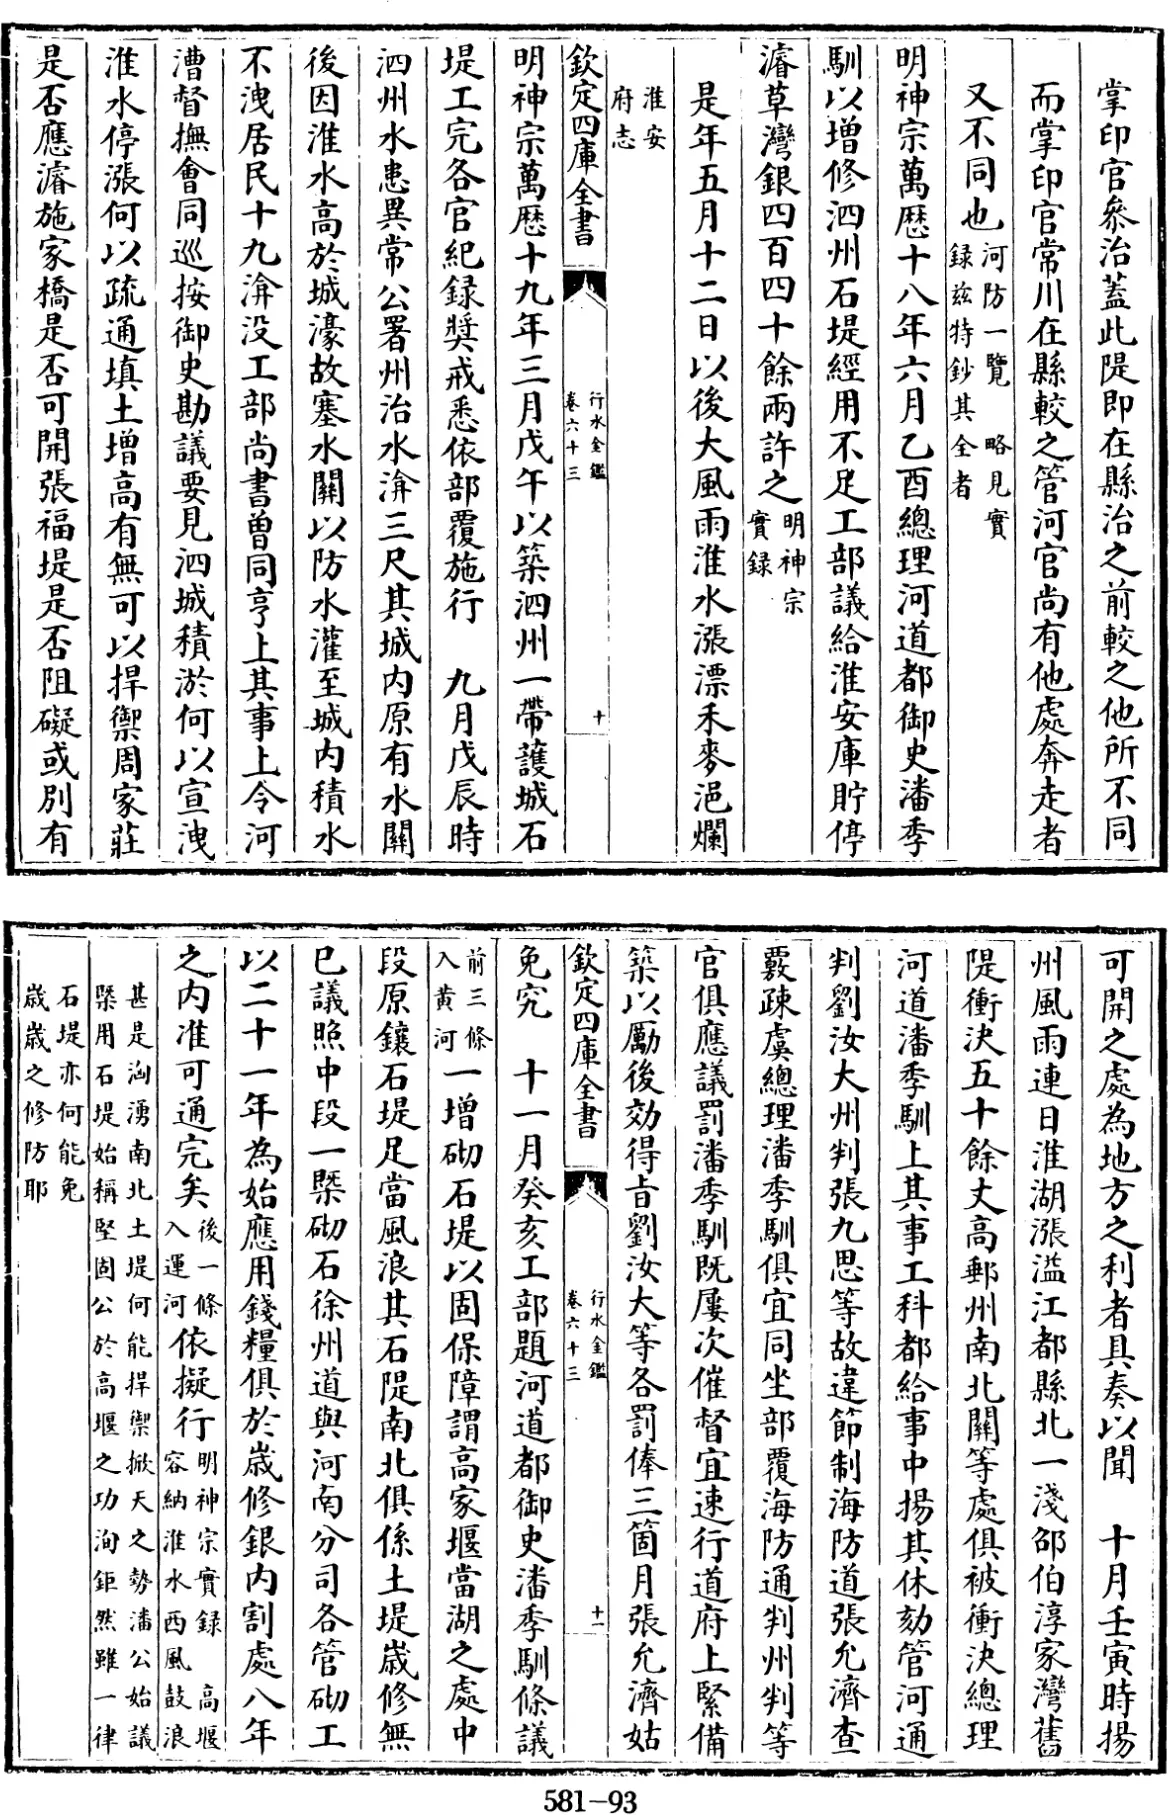 掌印官叅治蓋此隄即在縣治之前較之他所不同
而掌印官常川在縣較之管河官尚有他處奔走者
又不同也河防一覽略見實
録兹特鈔其全者
明神宗萬厯十八年六月乙酉總理河道都御史潘季
馴以增修泗州石堤經用不足工部議給淮安庫貯停
濬草灣銀四百四十餘兩許之明神宗
實録
是年五月十二日以後大風雨淮水漲漂禾麥浥爛
淮安
府志
欽定四庫全書
行水金鑑
卷六十三
十
明神宗萬厯十九年三月戊午以築泗州一帶護城石
堤工完各官紀録奬戒悉依部覆施行 九月戊辰時
泗州水患異常公署州治水渰三尺其城内原有水關
後因淮水高於城濠故塞水關以防水灌至城内積水
不洩居民十九渰没工部尚書曾同亨上其事上令河
漕督撫會同巡按御史勘議要見泗城積淤何以宣洩
淮水停漲何以疏通填土增高有無可以捍禦周家莊
是否應濬施家橋是否可開張福堤是否阻礙或别有
可開之處為地方之利者具奏以聞 十月壬寅時揚
州風雨連日淮湖漲溢江都縣北一淺邵伯淳家灣舊
隄衝決五十餘丈高郵州南北關等處俱被衝決總理
河道潘季馴上其事工科都給事中揚其休劾管河通
判劉汝大州判張九思等故違節制海防道張允濟查
覈疎虞總理潘季馴俱宜同坐部覆海防通判州判等
官俱應議罰潘季馴既屢次催督宜速行道府上緊備
築以厲後効得㫖劉汝大等各罰俸三箇月張允濟姑
欽定四庫全書
行水金鑑
卷六十三
十一
免究 十一月癸亥工部題河道都御史潘季馴條議
前三條
入黄河一增砌石堤以固保障謂高家堰當湖之處中
段原鑲石堤足當風浪其石隄南北俱係土堤歲修無
已議照中段一槩砌石徐州道與河南分司各管砌工
以二十一年為始應用錢糧俱於歲修銀内割處八年
之内准可通完矣後一條
入運河依擬行明神宗實録 高堰
容納淮水西風鼓浪
甚是洶湧南北土堤何能捍禦掀天之勢潘公始議
槩用石堤始稱堅固公於高堰之功洵鉅然雖一律
石堤亦何能免
歲歲之修防耶
581-93